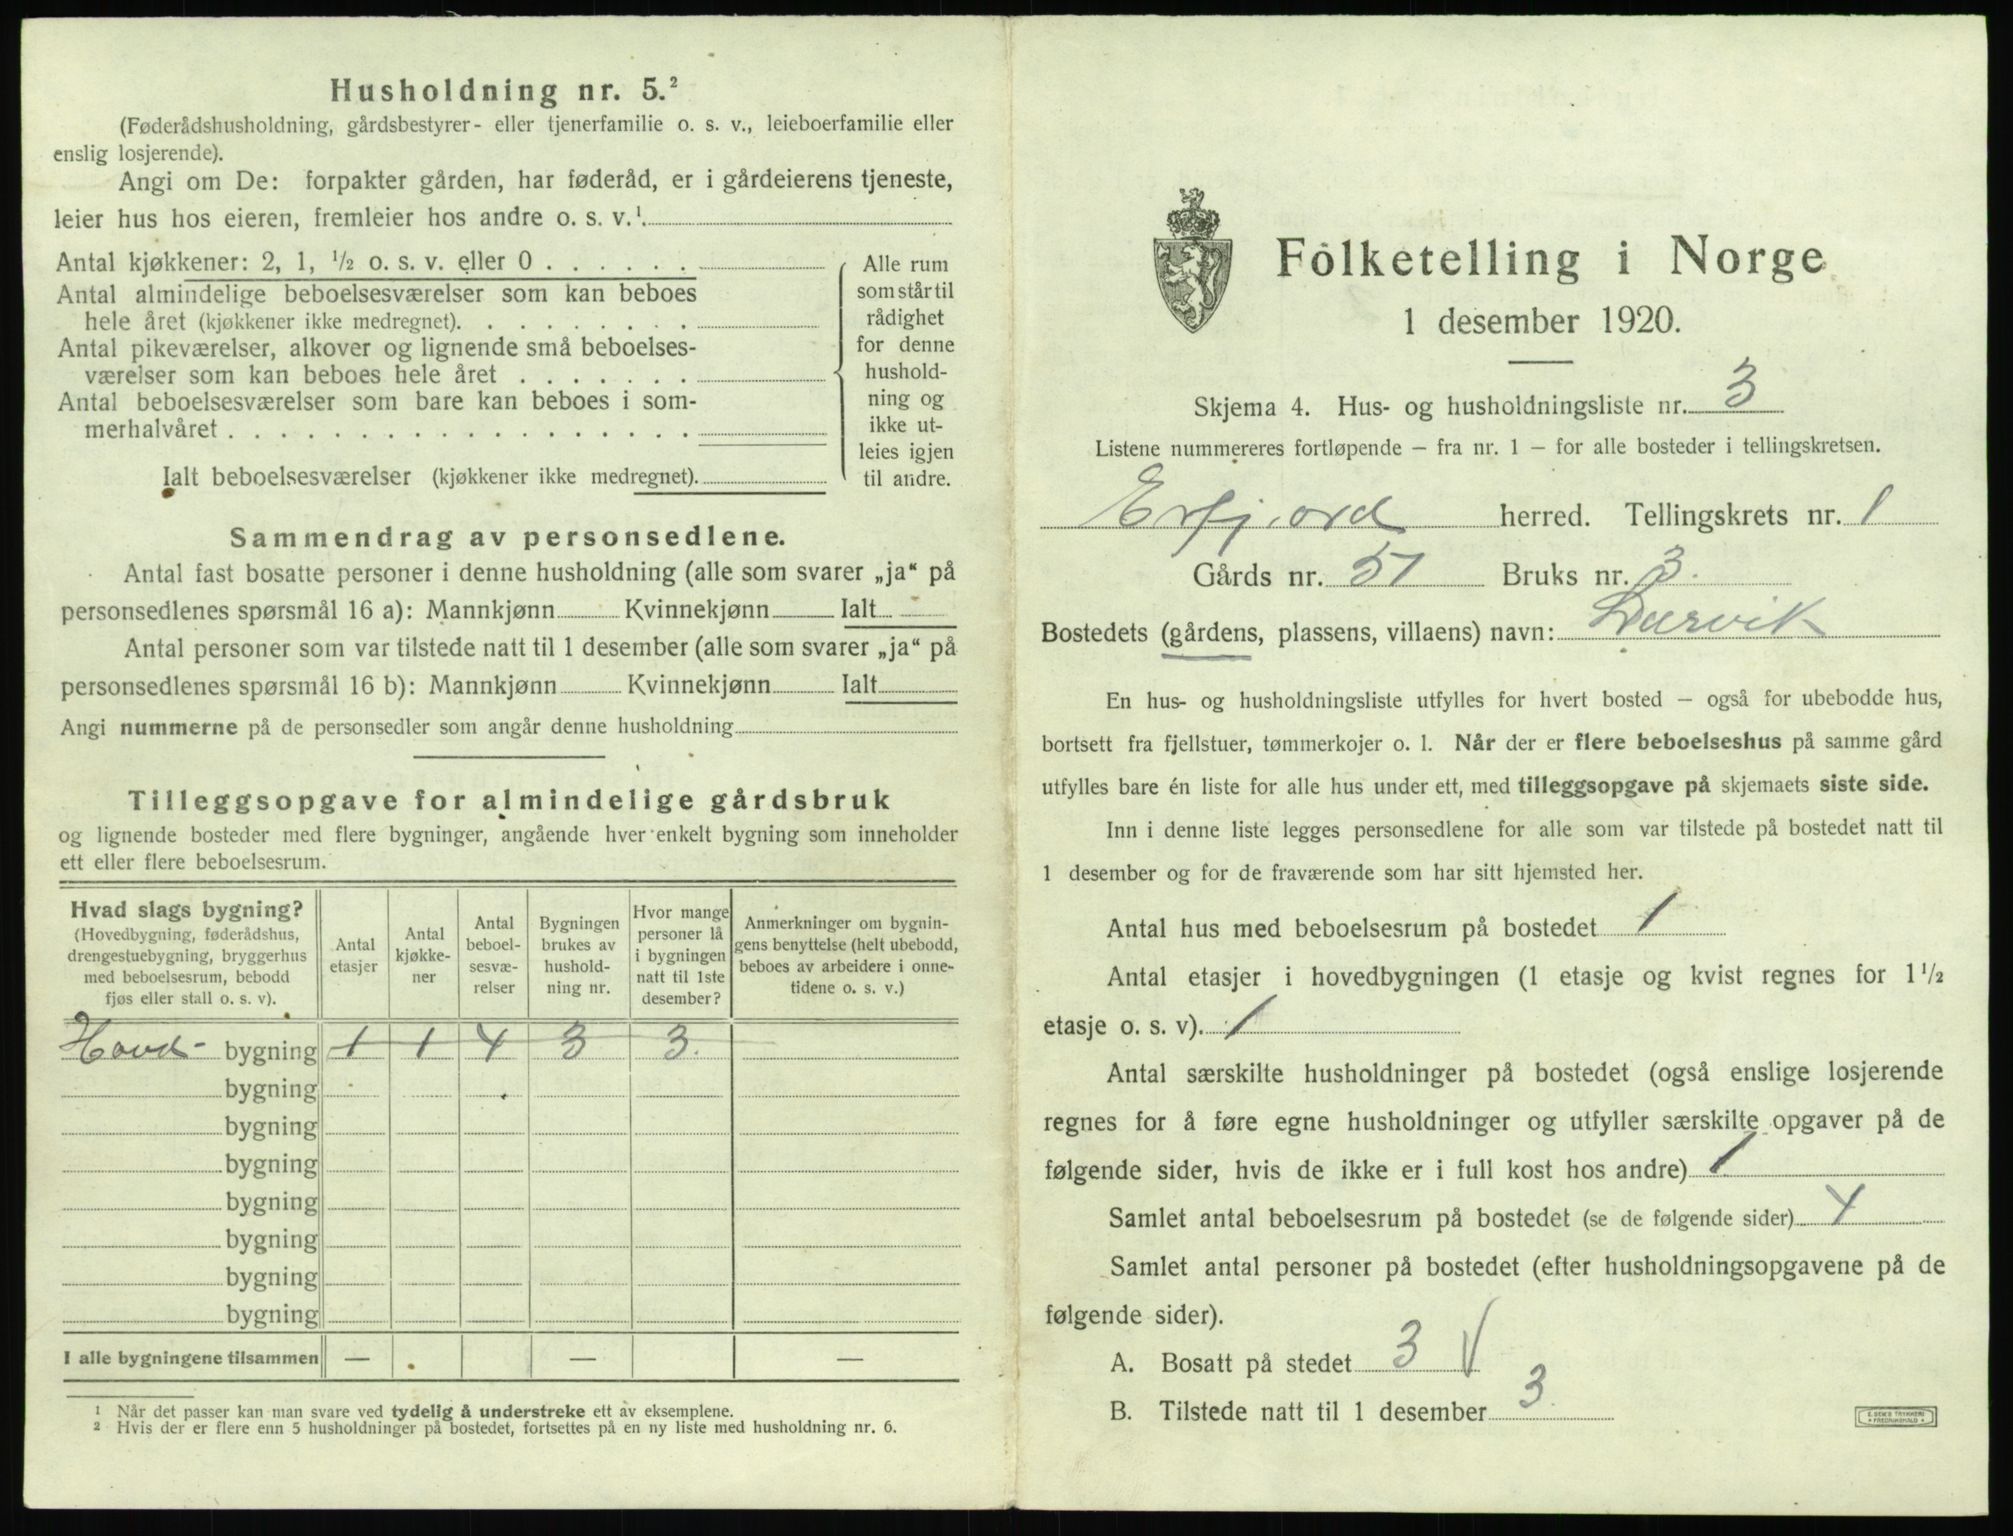 Husholdning nr. 5.²
(Føderådshusholdning, gårdsbestyrer- eller tjenerfamilie o. s. v., leieboerfamilie eller
enslig losjerende).
Angi om De: forpakter gården, har føderåd, er i gårdeierens tjeneste,
leier hus hos eieren, fremleier hos andre o. s. v.¹
Antal kjøkkener: 2, 1, ½ o. s. v. eller 0 . . . . . .
Antal almindelige beboelsesværelser som kan beboes
hele året (kjøkkener ikke medregnet). . . . . . . . .
Antal pikeværelser, alkover og lignende små beboelses-
værelser som kan beboes hele året . . . . . . .
Antal beboelsesværelser som bare kan beboes i som-
merhalvåret . . . . . . . . . . . . . . . . . .
Ialt beboelsesværelser (kjøkkener ikke medregnet).
Alle rum
som står til
rådighet
for denne
hushold-
ning og
ikke ut-
leies igjen
til andre.
Sammendrag av personsedlene.
Antal fast bosatte personer i denne husholdning (alle som svarer „ja“ på
personsedlenes spørsmål 16 a): Mannkjønn Kvinnekjønn Ialt
Antal personer som var tilstede natt til 1 desember (alle som svarer „ja“ på
personsedlenes spørsmål 16 b): Mannkjønn Kvinnekjønn Ialt
Angi nummerne på de personsedler som angår denne husholdning
Tilleggsopgave for almindelige gårdsbruk
og lignende bosteder med flere bygninger, angående hver enkelt bygning som inneholder
ett eller flere beboelsesrum.
Hvad slags bygning?
(Hovedbygning, føderådshus,
drengestuebygning, bryggerhus
med beboelsesrum, bebodd
fjøs eller stall o. s. v).
Antal
etasjer
Antal
kjøkke-
ner
Antal
beboel-
sesvæ-
relser
Bygningen
brukes av
hushold-
ning nr.
Hvor mange
personer lå
i bygningen
natt til 1ste
desember?
Anmerkninger om bygnin-
gens benyttelse (helt ubebodd,
beboes av arbeidere i onne-
tidene o. s. v.)
Hoved- bygning 1 1 4 3 3.
bygning
bygning
bygning
bygning
bygning
bygning
bygning
I alle bygningene tilsammen — — —
¹ Når det passer kan man svare ved tydelig å understreke ett av eksemplene.
² Hvis der er flere enn 5 husholdninger på bostedet, fortsettes på en ny liste med husholdning nr. 6.
Folketelling i Norge
1 desember 1920.
Skjema 4. Hus- og husholdningsliste nr. 3
Listene nummereres fortløpende – fra nr. 1 – for alle bosteder i tellingskretsen.
Erfjord herred. Tellingskrets nr. 1
Gårds nr. 51 Bruks nr. 3.
Bostedets (gårdens, plassens, villaens) navn:
En hus- og husholdningsliste utfylles for hvert bosted – også for ubebodde hus,
bortsett fra fjellstuer, tømmerkojer o. l. Når der er flere beboelseshus på samme gård
utfylles bare én liste for alle hus under ett, med tilleggsopgave på skjemaets siste side.
Inn i denne liste legges personsedlene for alle som var tilstede på bostedet natt til
1 desember og for de fraværende som har sitt hjemsted her.
Antal hus med beboelsesrum på bostedet 1
Antal etasjer i hovedbygningen (1 etasje og kvist regnes for 1½
etasje o. s. v). 1
Antal særskilte husholdninger på bostedet (også enslige losjerende
regnes for å føre egne husholdninger og utfyller særskilte opgaver på de
følgende sider, hvis de ikke er i full kost hos andre) 1
Samlet antal beboelsesrum på bostedet (se de følgende sider) 4
Samlet antal personer på bostedet (efter husholdningsopgavene på de
følgende sider).
A. Bosatt på stedet 3 √
B. Tilstede natt til 1 desember 3.